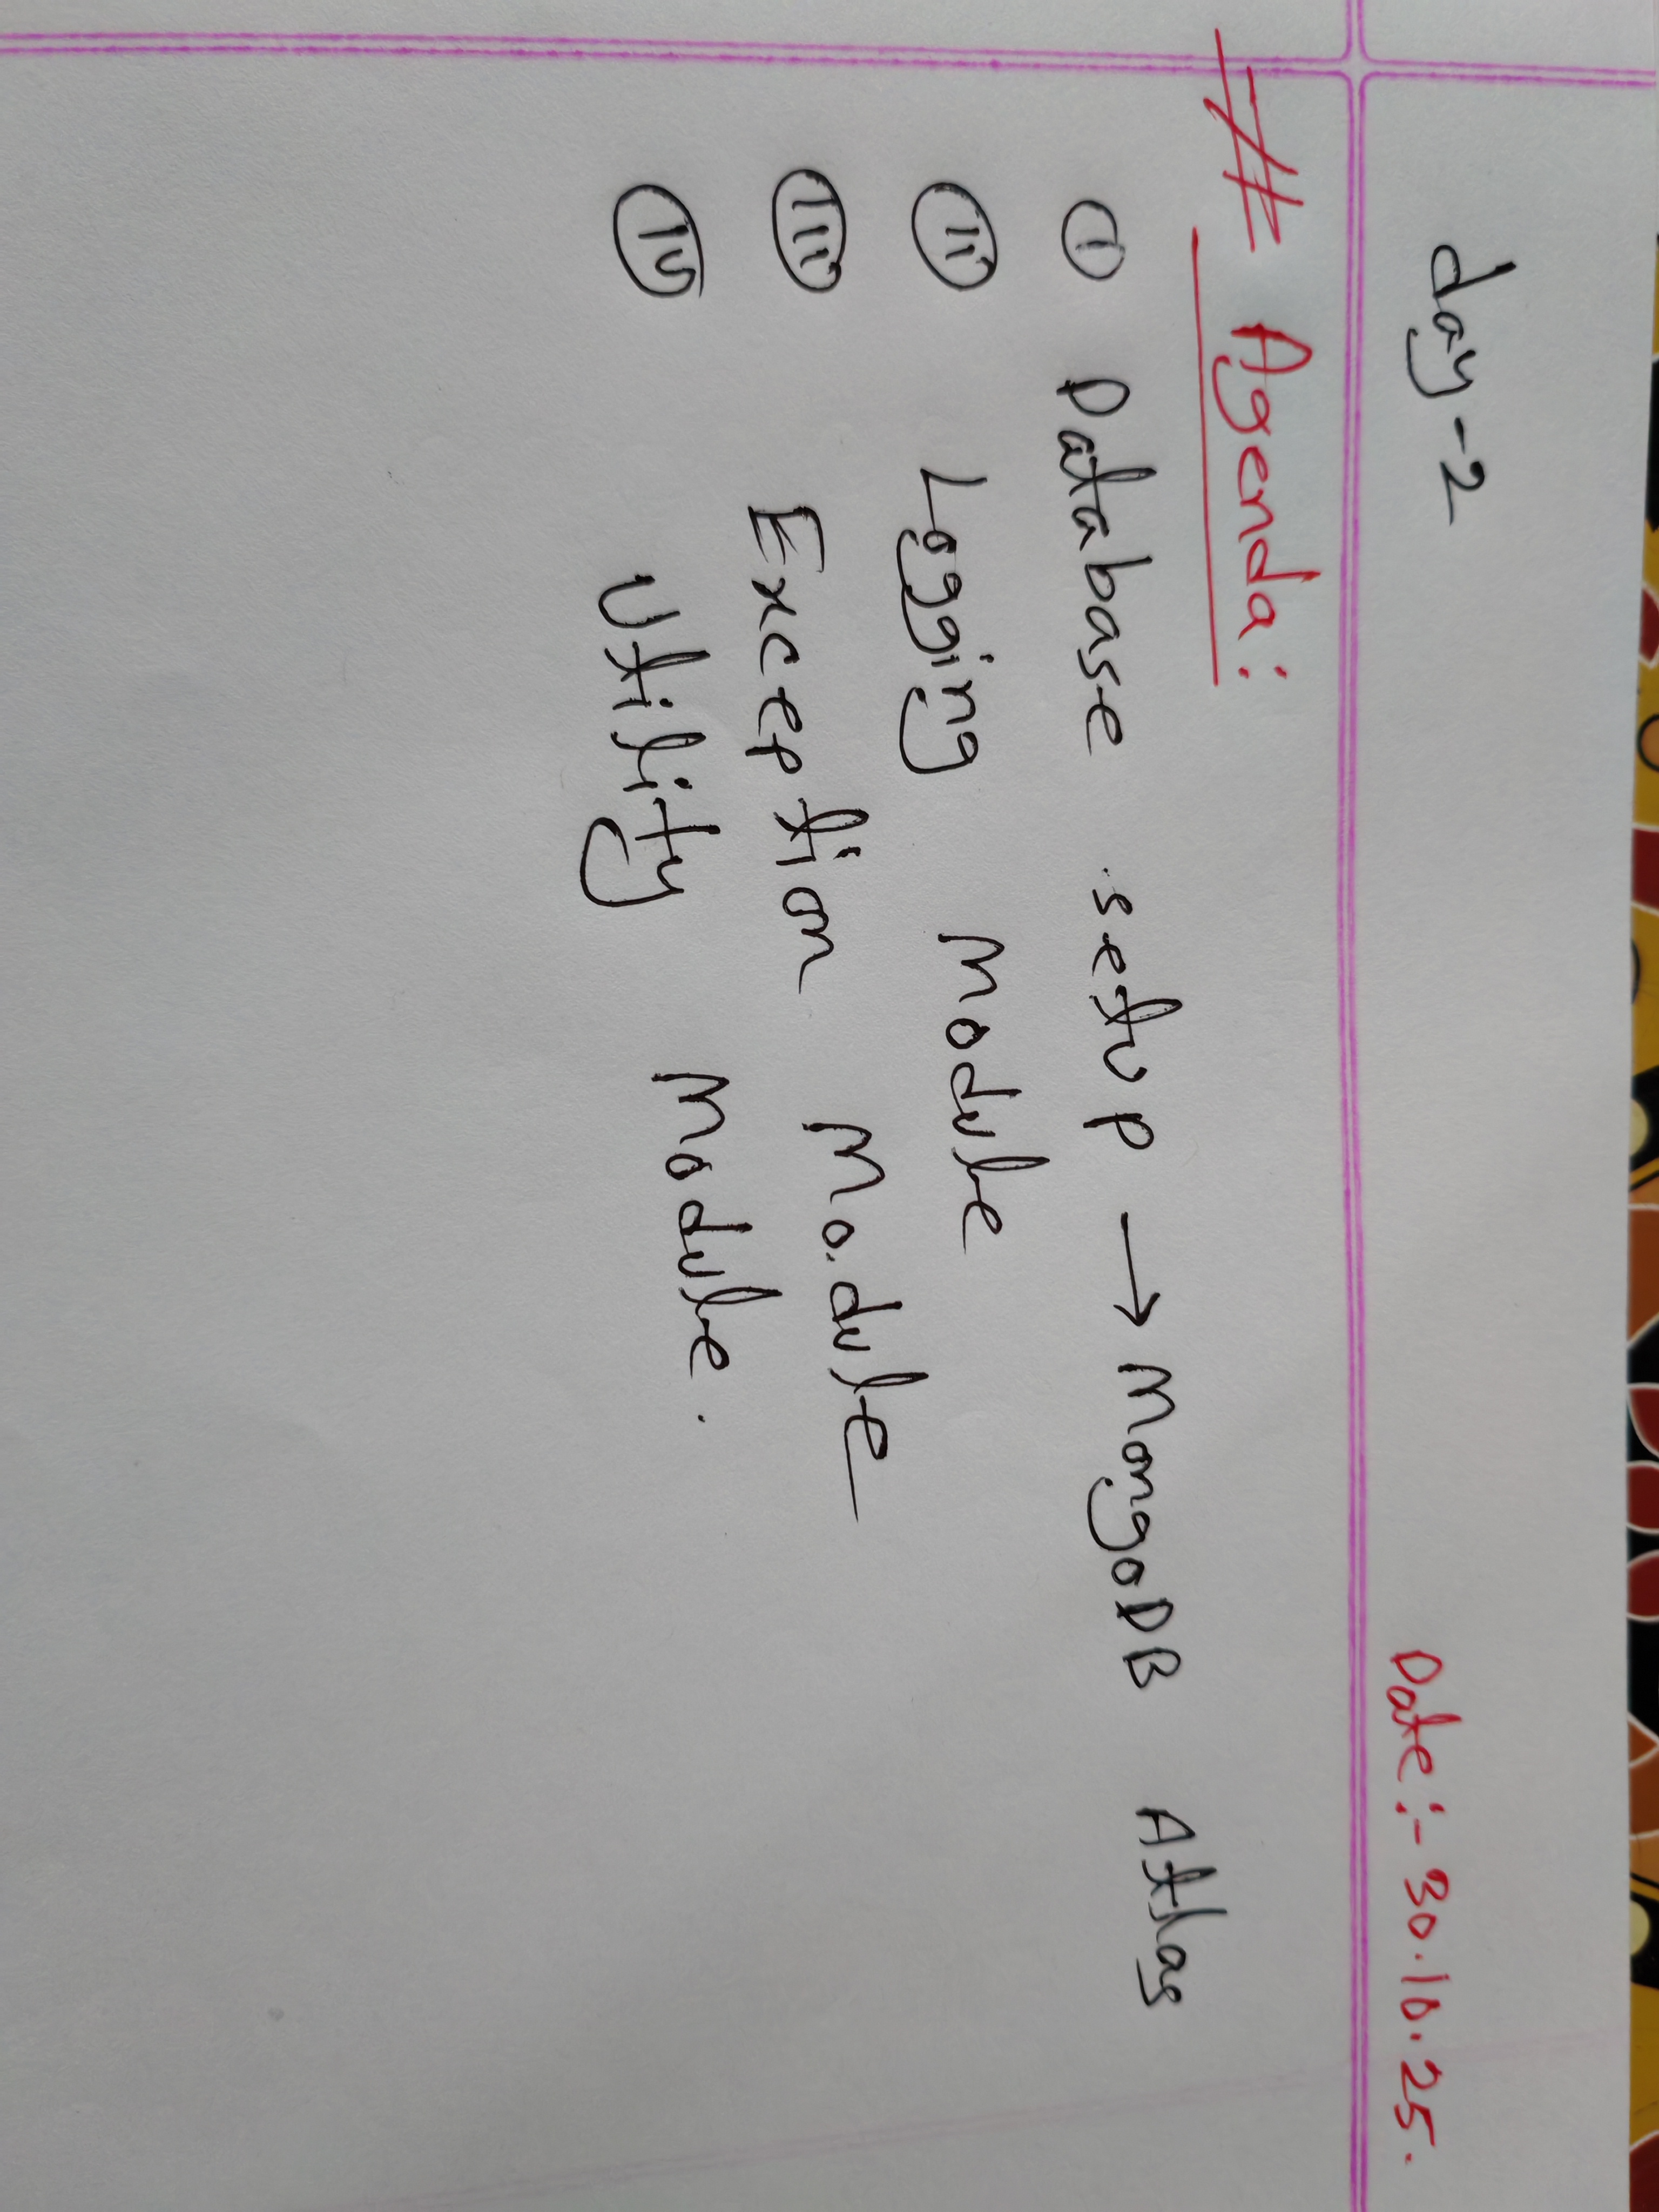 day-2 Date:- 30.10.25.
# Agenda:
(i) Database setup → MongoDB Atlas
(ii) Logging Module
(iii) Exception Module
(iv) Utility Module.